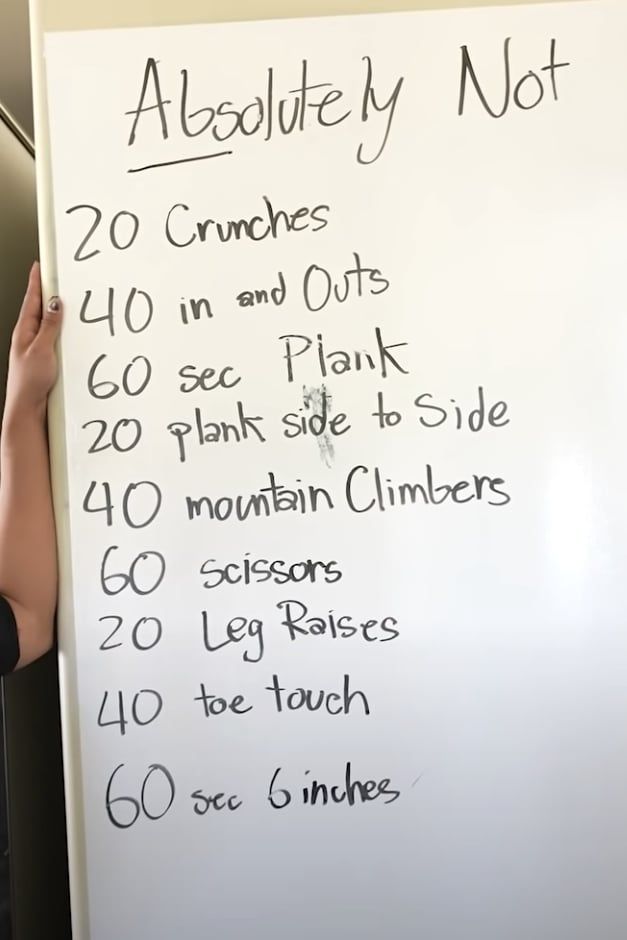 Absolutely Not
20 Crunches
40 in and Outs
60 sec Plank
20 plank side to Side
40 mountain Climbers
60 scissors
20 Leg Raises
40 toe touch
60 sec 6 inches